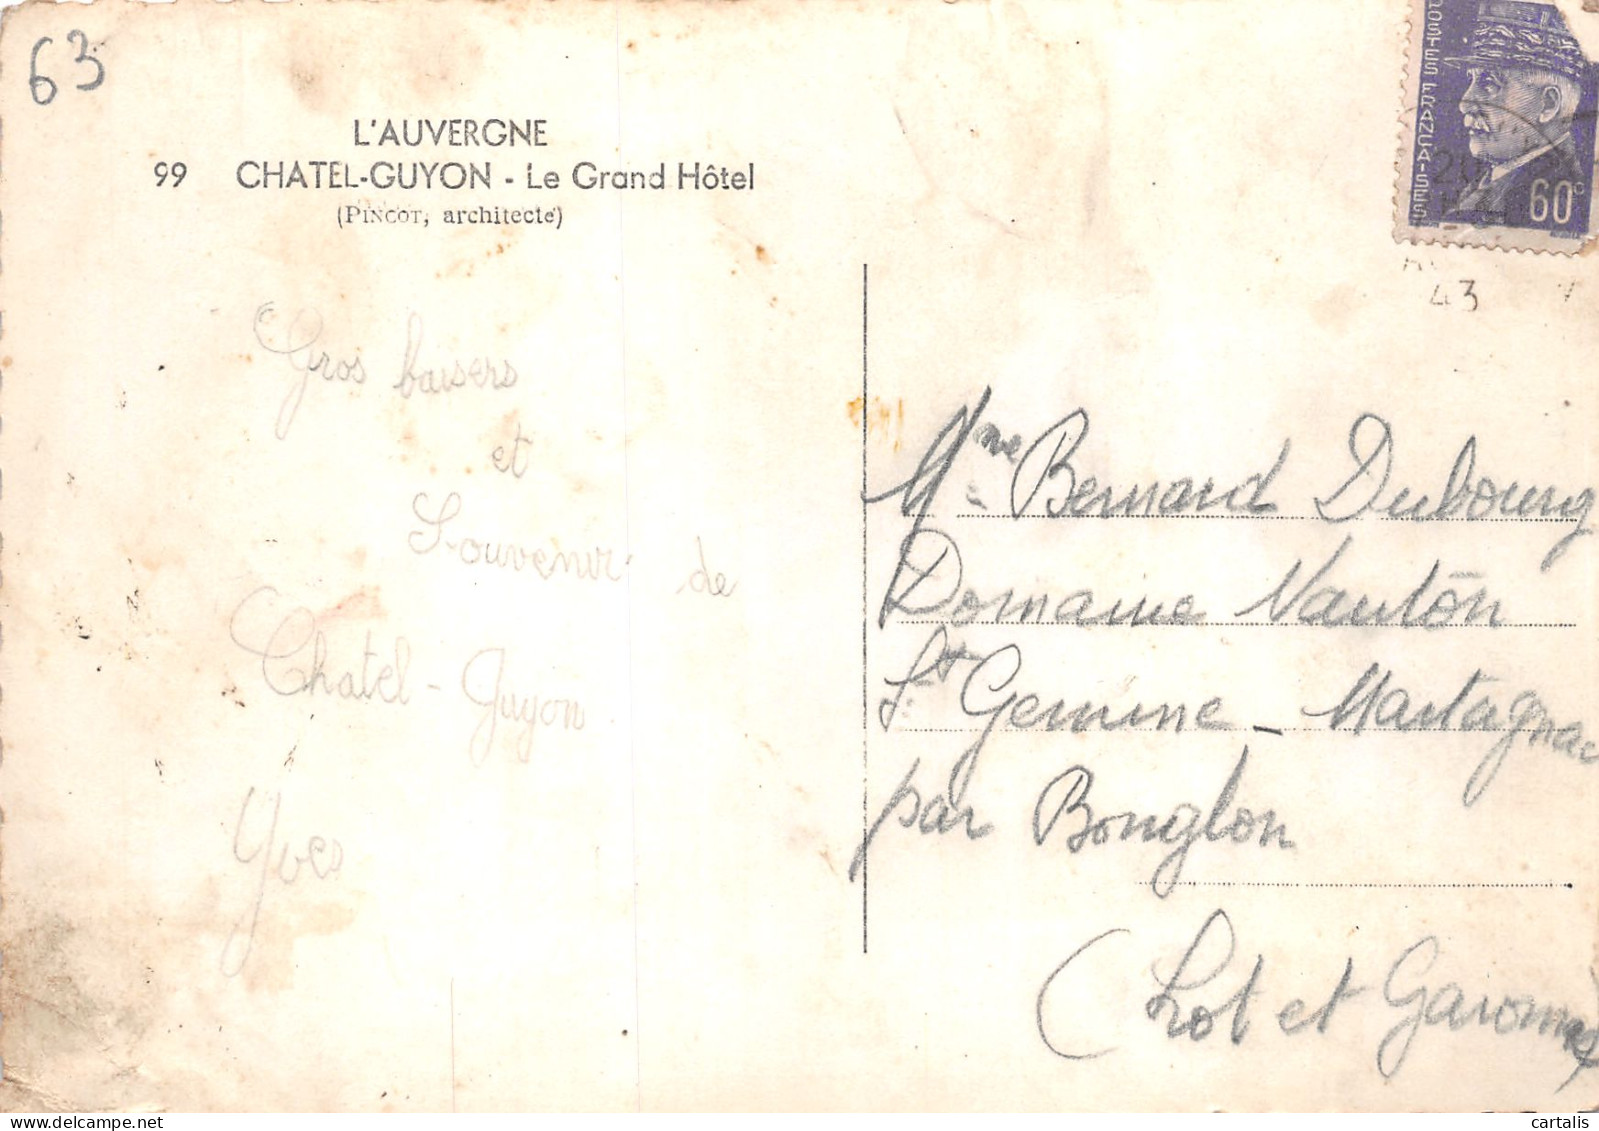 63
L'AUVERGNE
99 CHATEL-GUYON - Le Grand Hôtel
(PINCOT, architecte)
POSTES FRANÇAISES
60c
20
43
Gros baisers
et
Souvenir de
Chatel-Guyon.
Yves
Mme Bernard Dubourg
Domaine Nautôn
St Gemme - Martagnac
par Bouglon
(Lot et Garonne)
cartalis